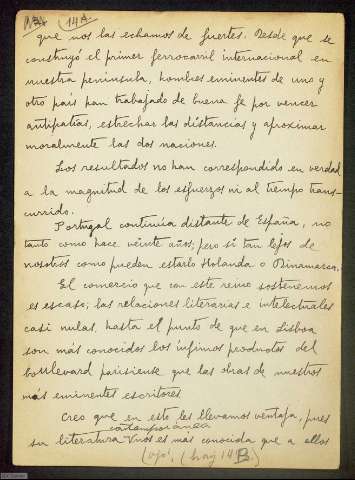 14A
que nos las echamos de fuertes. Desde que se
construyó el primer ferrocarril internacional en
nuestra península, hombres eminentes de uno y
otro país han trabajado de buena fe por vencer
antipatías, estrechar las distancias y aproximar
moralmente las dos naciones.
Los resultados no han correspondido en verdad
a la magnitud de los esfuerzos ni al tiempo trans-
currido.
Portugal continúa distante de España, no
tanto como hace veinte años; pero sí tan lejos de
nosotros como pueden estarlo Holanda o Dinamarca.
El comercio que con este reino sostenemos
es escaso; las relaciones literarias e intelectuales
casi nulas, hasta el punto de que en Lisboa
son más conocidos los ínfimos productos del
boulevard parisiense que las obras de nuestros
más eminentes escritores
Creo que en esto les llevamos ventaja, pues
contemporánea
su literatura nos es más conocida que a ellos
(ojo, (hay 14B)